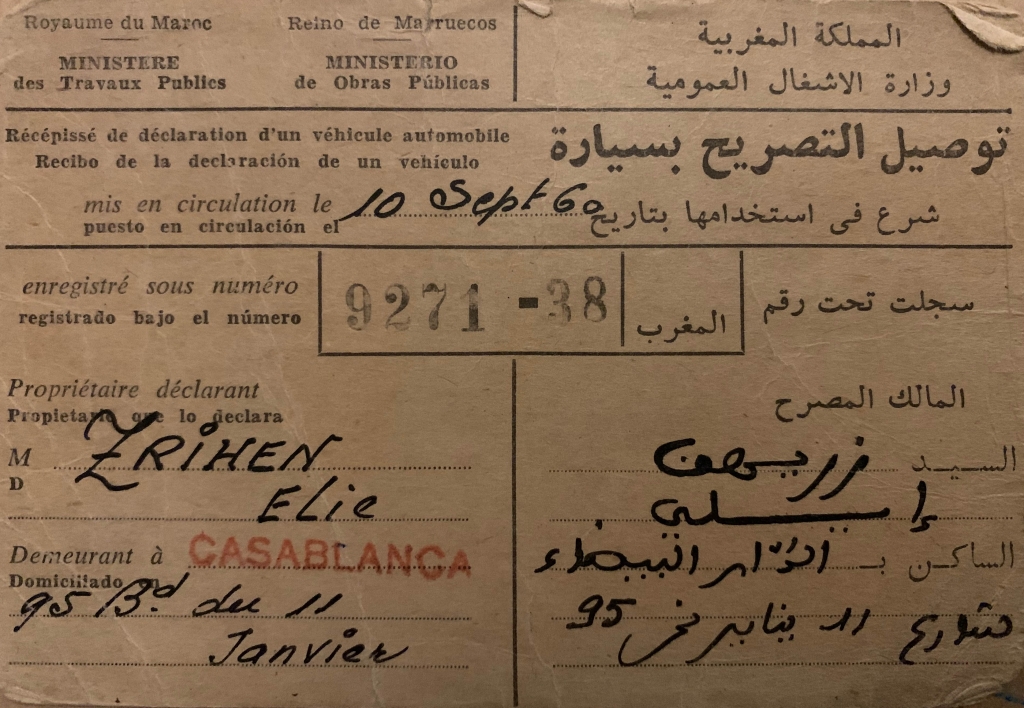 Royaume du Maroc
MINISTERE
des Travaux Publics
Reino de Marruecos
MINISTERIO
de Obras Públicas
المملكة المغربية
وزارة الاشغال العمومية
Récépissé de déclaration d'un véhicule automobile
Recibo de la declaración de un vehículo
توصيل التصريح بسيارة
mis en circulation le 10 Sept 60
puesto en circulación el
شرع في استخدامها بتاريخ
enregistré sous numéro
registrado bajo el número
9271 - 38
المغرب
سجلت تحت رقم
Propriétaire déclarant
Propietario que lo declara
M ZRIHEN
D
Elie
Demeurant à CASABLANCA
Domiciliado en
95 Bd du 11
Janvier
المالك المصرح
السيد زريهن
إيلي
الساكن بـ الدار البيضاء
شارع 11 يناير نمر 95